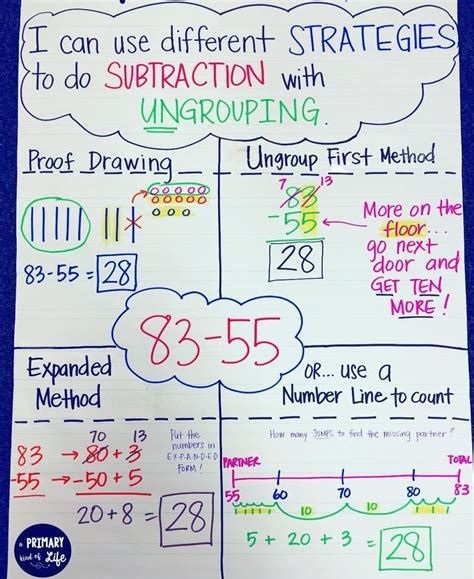 I can use different STRATEGIES
to do SUBTRACTION with
UNGROUPING.
Proof Drawing
83-55 = 28
Ungroup First Method
7 13
83
-55
28
More on the
floor...
go next
door and
GET TEN
MORE!
83-55
Expanded
Method
70 13
83 → 80 + 3
-55 → -50 + 5
20 + 8 = 28
Put the
numbers in
E-X-P-A-N-D-E-D
FORM!
OR... use a
Number Line to count
How many JUMPS to find the missing partner?
PARTNER TOTAL
55 60 70 80 83
10 10
5 + 20 + 3 = 28
a PRIMARY
kind of Life